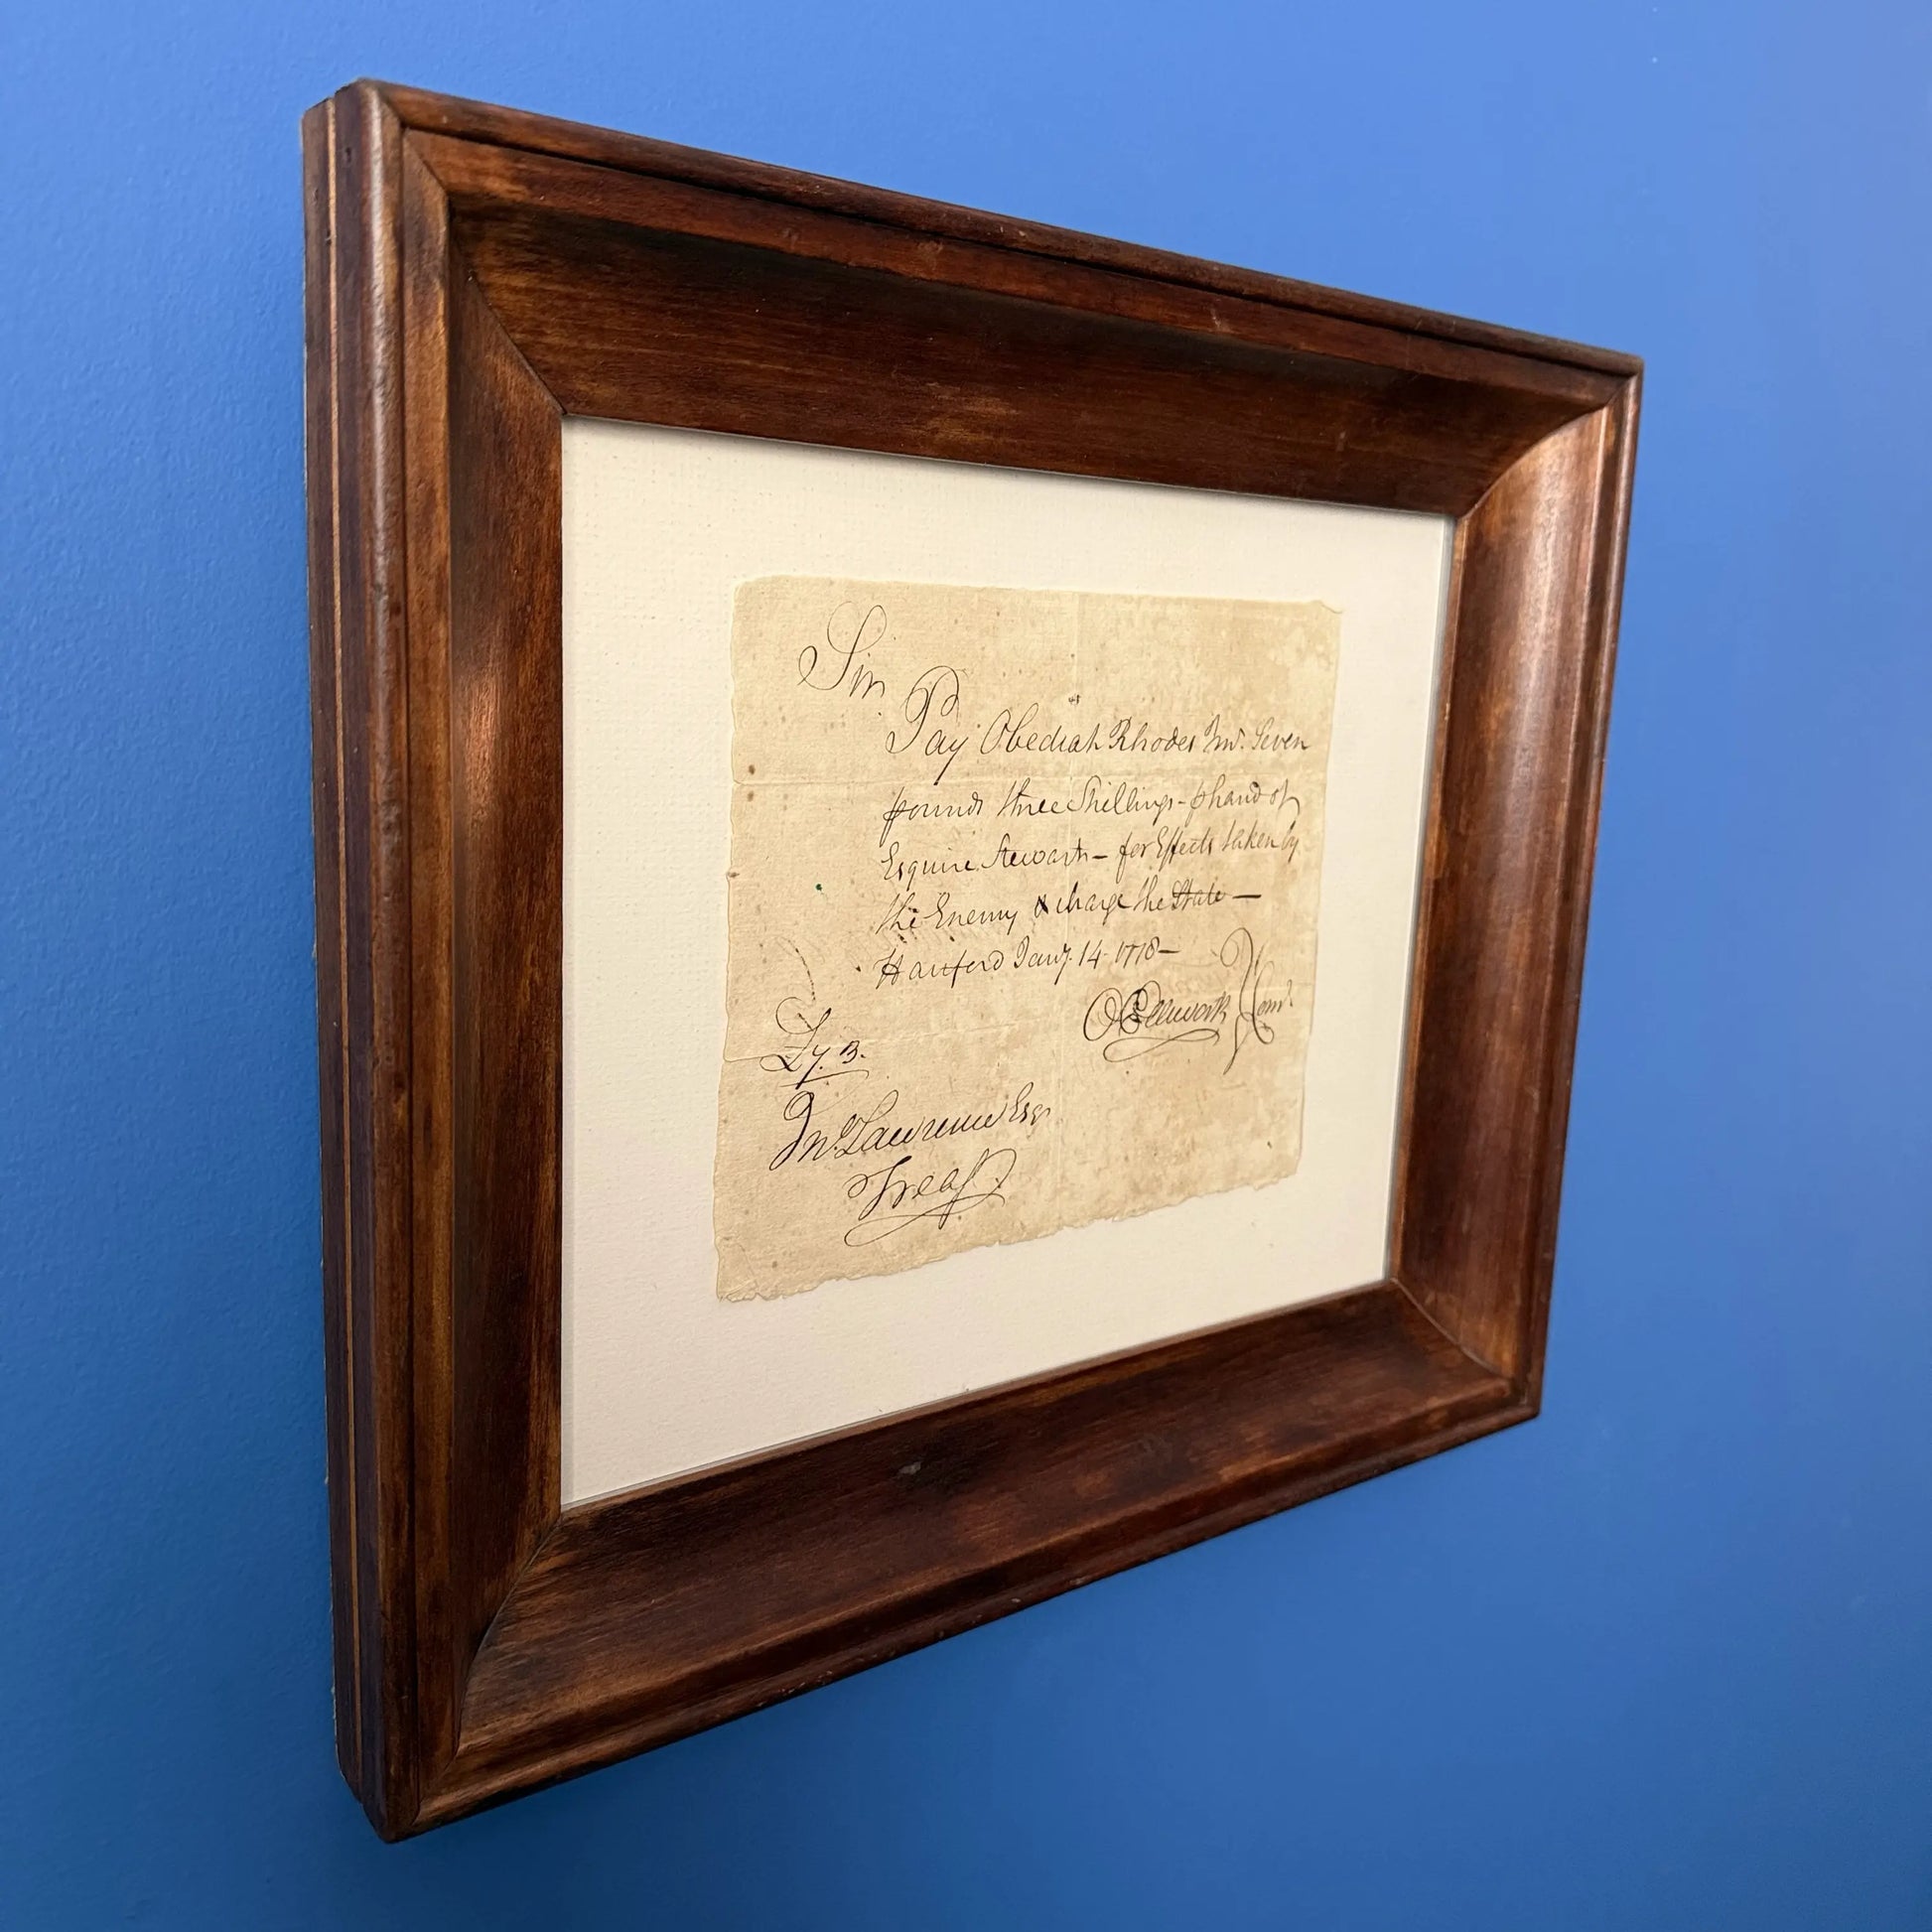 Sir
Pay Obediah Rhodes Junr. Seven
pounds three Shillings - p hand of
Esquire Stewart - for Effects taken by
the Enemy & charge the State -
Hartford Jany. 14. 1778 -
O Ellsworth Comt.
Jno. Lawrence Esqr
Treasr.